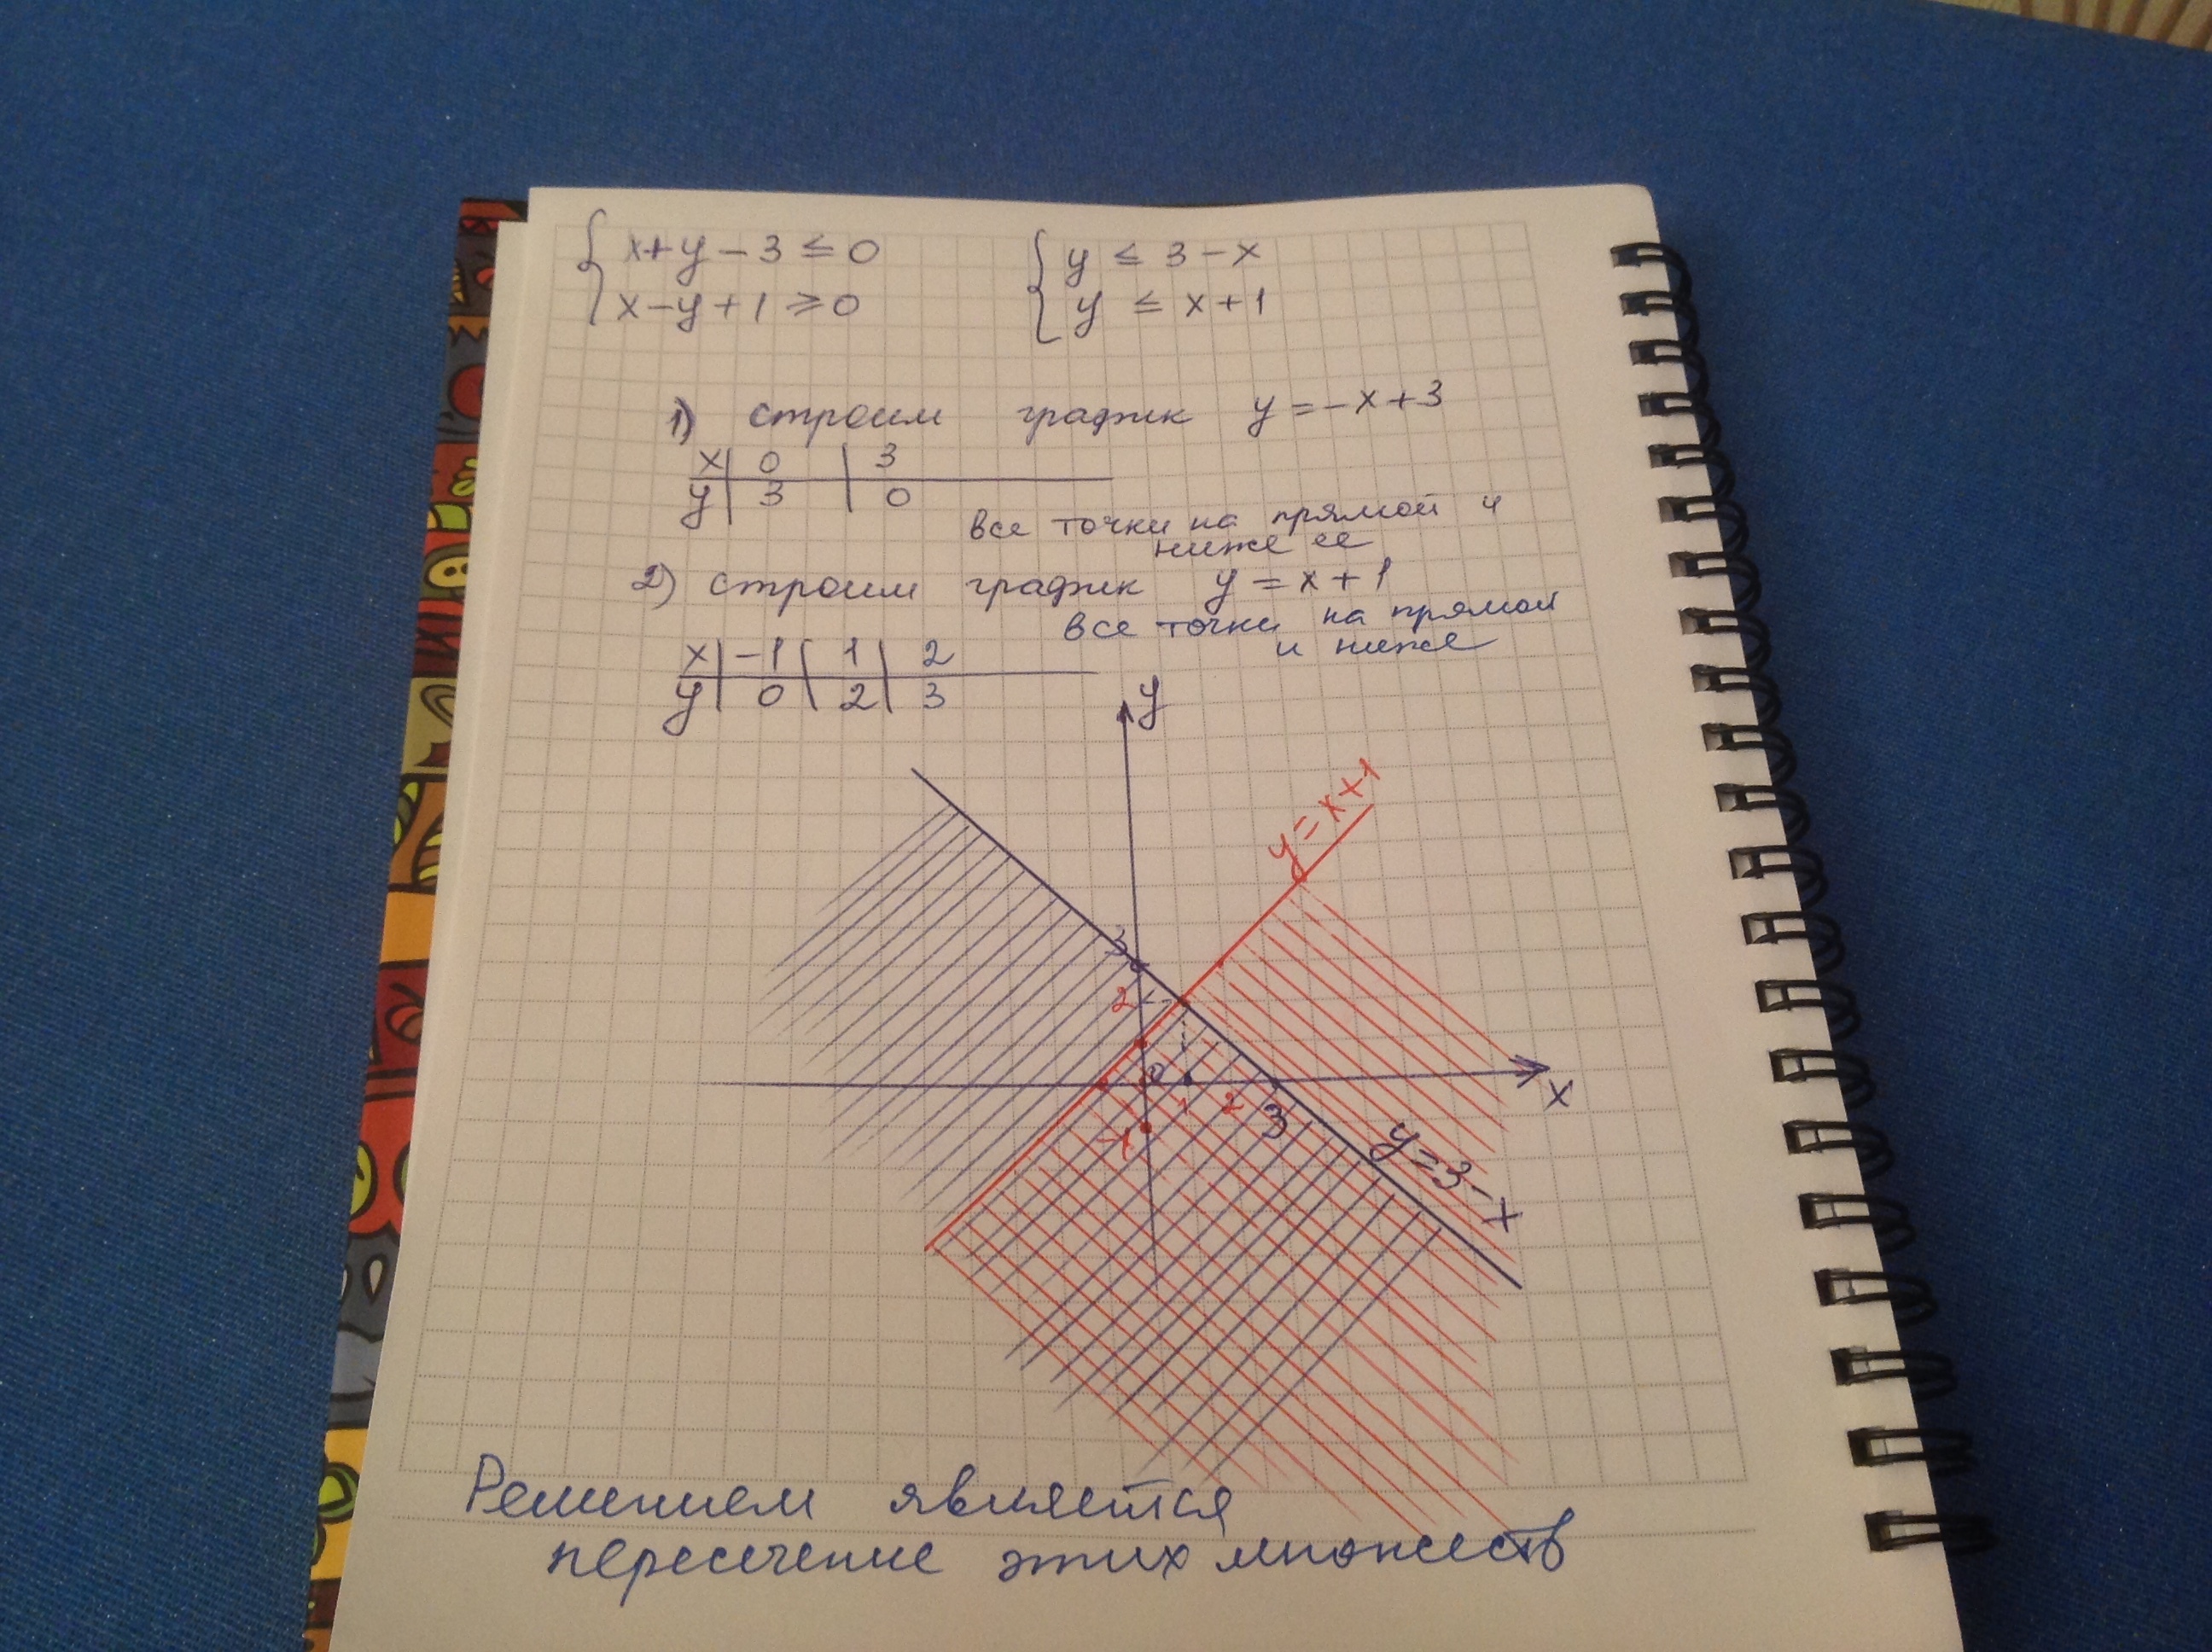 { x+y-3 ≤ 0
x-y+1 ⩾ 0
{ y ≤ 3-x
y ≤ x+1
1) строим график y=-x+3
x | 0 | 3
y | 3 | 0
все точки на прямой и
ниже ее
2) строим график y=x+1
все точки на прямой
и ниже
x | -1 | 1 | 2
y | 0 | 2 | 3
y
y=x+1
3
2
0
x
1 2 3
-1
y=3-x
Решением является
пересечение этих множеств